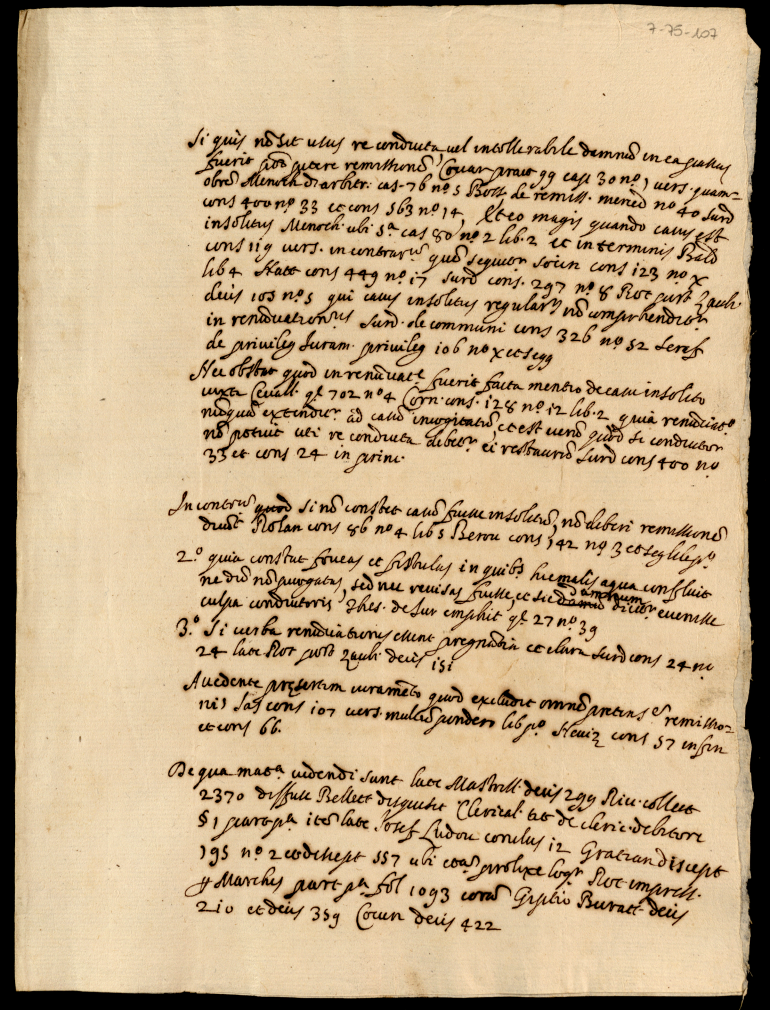 7-75-107
Si quis nõ sit usus re conducta, vel intollerabile damnũ in ea passus
fuerit põt petere remissionẽ, Covar pract qq cap 30 nº 1 vers. quam=
obrẽ Menoch d arbitr. cas. 76 nº 5 Boss de remiss. merced nº 40 Surd
cons 400 nº 33 et cons 563 nº 14, Et eo magis quando casus est
insolitus Menoch. ubi sª cas 80 nº 2 lib. 2 et in terminis Bald
cons 119 vers. in contrariũ quẽ sequitor Socin cons 123 nº x
lib 4 Natt cons 449 nº 17 Surd cons. 297 nº 8 Rot post Zacch.
decis 103 nº 5 qui casus insolitus regularr nõ comprehenditor
in renũciationibus Surd. de communi cons 326 nº 52 Seraf
de privileg Iuram. privileg 106 nº x et seqq
Nec obstat quod in renũciat.e fuerit facta mentio de casu insolito
iuxta Cevall. ql 702 nº 4 Corn. cons. 128 nº 12 lib. 2 quia renũciatº
nũquã extenditr ad casũ incogitatũ, et est verũ quod si conductor
nõ potuit uti re conducta debetr ei restaurũ Surd cons 400 nº
33 et cons 24 in princ.
In contriũ quod si nõ constet casũ fuisse insolitũ, nõ deberi remissionẽ
dicũt Rolan cons 86 nº 4 lib 5 Berou cons 142 nº 3 et seq lib pº
2.º quia constat foveas et fistulas in quibs hiemalis aqua confluit
ne dũ nõ purgatas, sed nec revisas fuisse, et sic damnum dicitr evenisse
culpa conductoris Thes. de Iur emphit ql 27 nº 39
3.º Si verba renũciationis essent pregnãtia et clara Surd cons 24 nº
24 late Rot post Zacch decis 151
Accedente presertim iuramẽto quod excludit omnẽ pretens.e remissio=
nis Jas cons 107 vers. multũ pondero lib pº Heviz cons 57 in fin
et cons 66.
De qua mat.a videndi sunt late Mastrill decis 299 Ricc. collect
2370 diffuse Bellett disquisit Clerical. tit de cleric. debitore
§ 1 part pª itẽ late Josef Ludou conclus 12 Gratian discept
195 nº 2 et discept 557 ubi etiã prolixe loqr Rot impress.
p Marches part pª fol 1093 corã Gipsio Buratt decis
210 et decis 359 Coccin decis 422